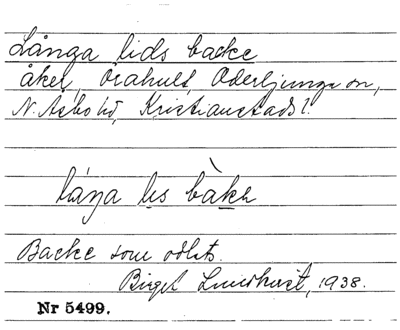 Långa lids backe
åker, Örahult, Oderljunga sn,
N. Åsbo hd, Kristianstads l.
låŋa les bàke
Backe som odlats.
Birger Lundqvist, 1938.
Nr 5499.